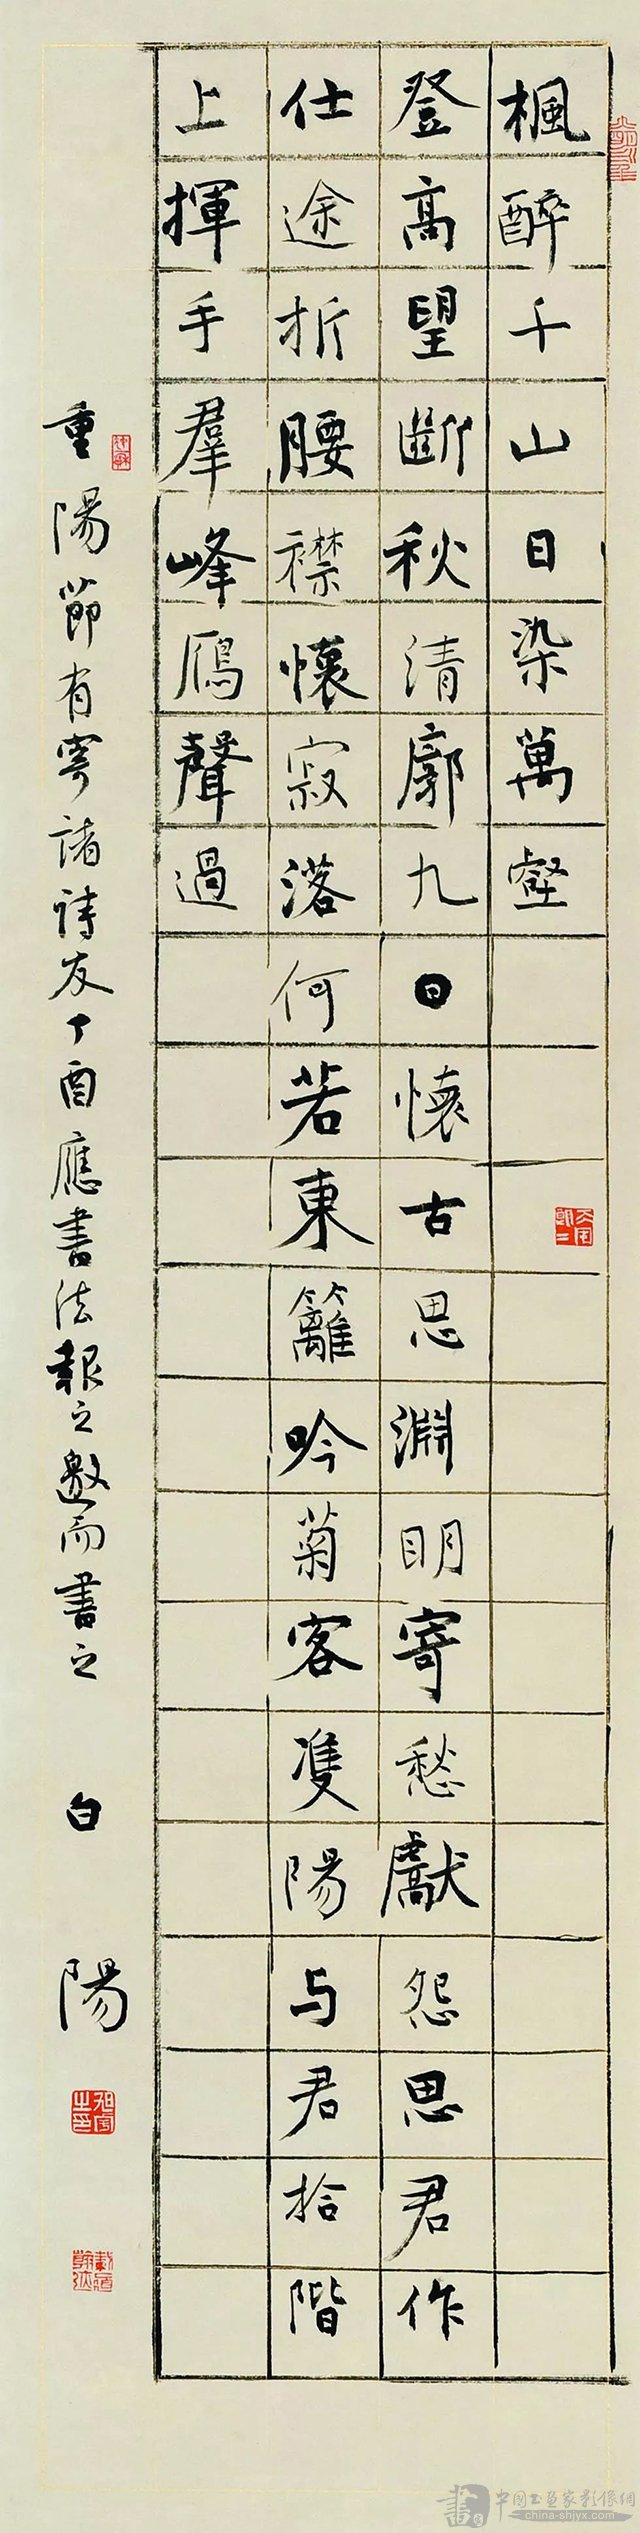 楓醉千山日染萬壑
登高望斷秋清廓九日懷古思淵明寄愁獻怨思君作
仕途折腰襟懷寂落何若東籬吟菊客隻陽与君拾階
上揮手羣峰鴈聲過
重陽節有寄諸詩友丁酉應書法報之邀而書之
白陽
中國书画家影像網
china-shjyx.com